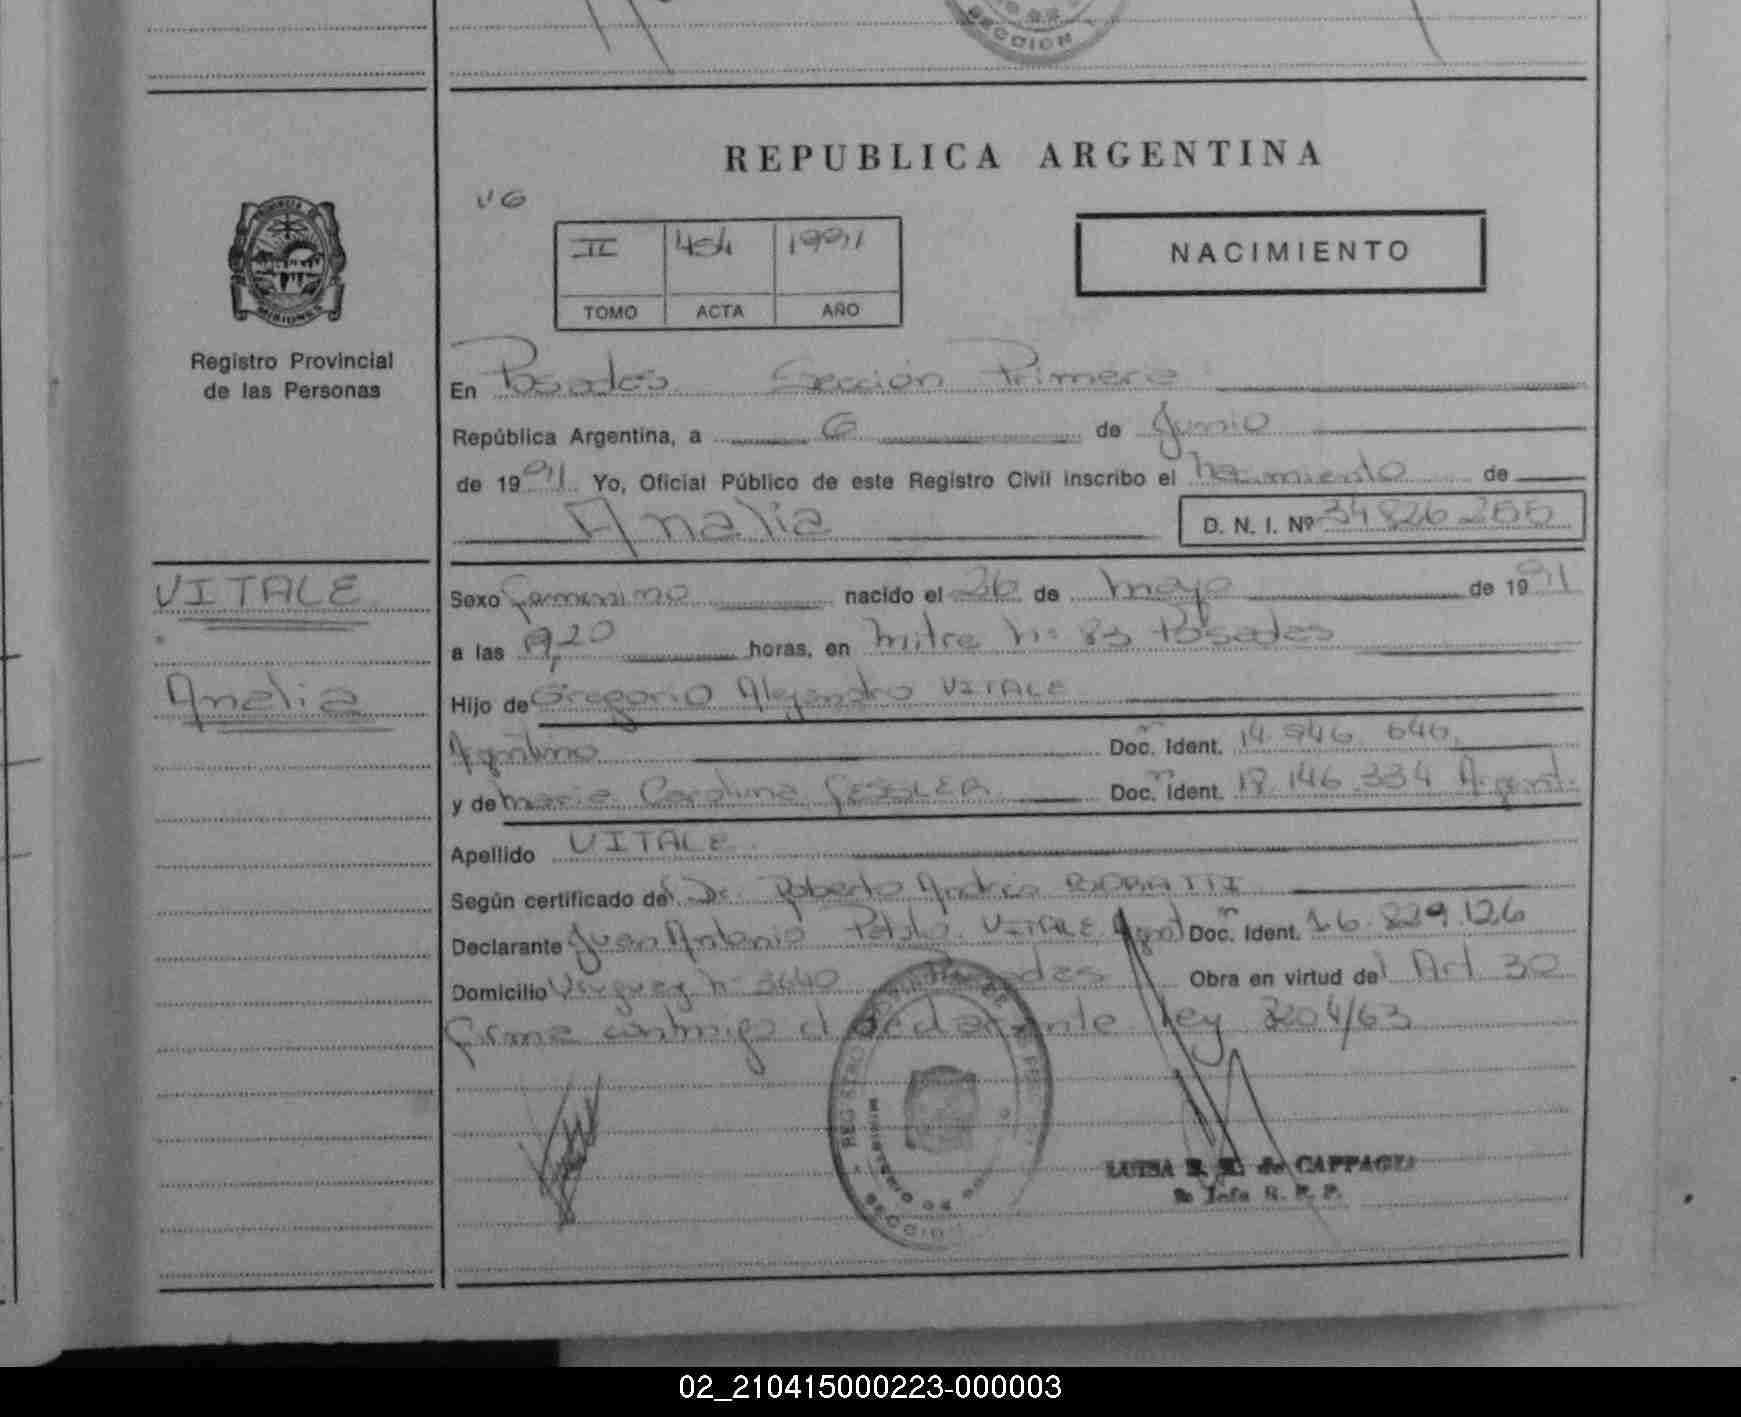 SECCION
REPUBLICA ARGENTINA
PROVINCIA DE
MISIONES
Registro Provincial
de las Personas
II 454 1991
TOMO ACTA AÑO
NACIMIENTO
En Posadas Sección Primera
República Argentina, a 6 de Junio
de 1991 Yo, Oficial Público de este Registro Civil inscribo el Nacimiento de
Analia D. N. I. Nº 34 826 255
VITALE
Analia
Sexo femenino nacido el 26 de mayo de 1991
a las 9,20 horas, en Mitre Nº 83 Posadas
Hijo de Gregorio Alejandro VITALE
Argentino Doc. Ident. 14.946.646
y de Maria Carolina GESSLER Doc. Ident. 18.146.334 Argent.
Apellido VITALE
Según certificado del Dr. Roberto Andrés
Declarante Juan Antonio Pablo VITALE Doc. Ident. 16.829.126
Domicilio Nº 3640 Posadas Obra en virtud del Art 30
firma conmigo el declarante Ley 3204/63
REGISTRO
MINISTERIO DE
SECCIO
LUISA de CAPPAGLI
Jefa R. P. P.
02_210415000223-000003